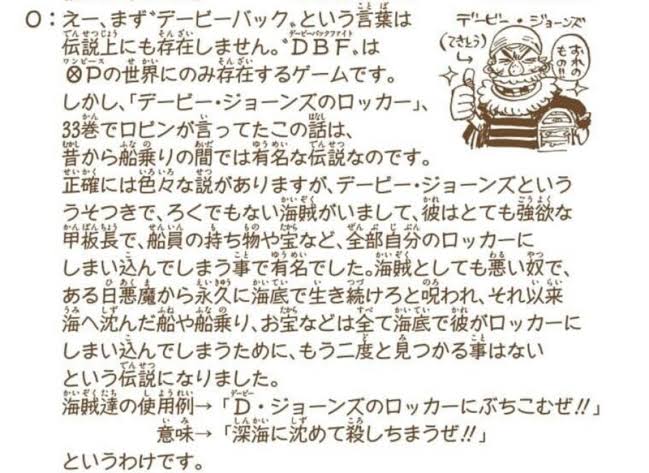 O：えー、まず〝デービーバック〟という言葉は
伝説上にも存在しません。〝DBF〟は
ⓍPの世界にのみ存在するゲームです。
しかし、「デービー・ジョーンズのロッカー」、
33巻でロビンが言ってたこの話は、
昔から船乗りの間では有名な伝説なのです。
正確には色々な説がありますが、デービー・ジョーンズという
うそつきで、ろくでもない海賊がいまして、彼はとても強欲な
甲板長で、船員の持ち物や宝など、全部自分のロッカーに
しまい込んでしまう事で有名でした。海賊としても悪い奴で、
ある日悪魔から永久に海底で生き続けろと呪われ、それ以来
海へ沈んだ船や船乗り、お宝などは全て海底で彼がロッカーに
しまい込んでしまうために、もう二度と見つかる事はない
という伝説になりました。
海賊達の使用例→「D・ジョーンズのロッカーにぶちこむぜ!!」
意味→「深海に沈めて殺しちまうぜ!!」
というわけです。
デービー・ジョーンズ
(てきとう)
おれのもの!!